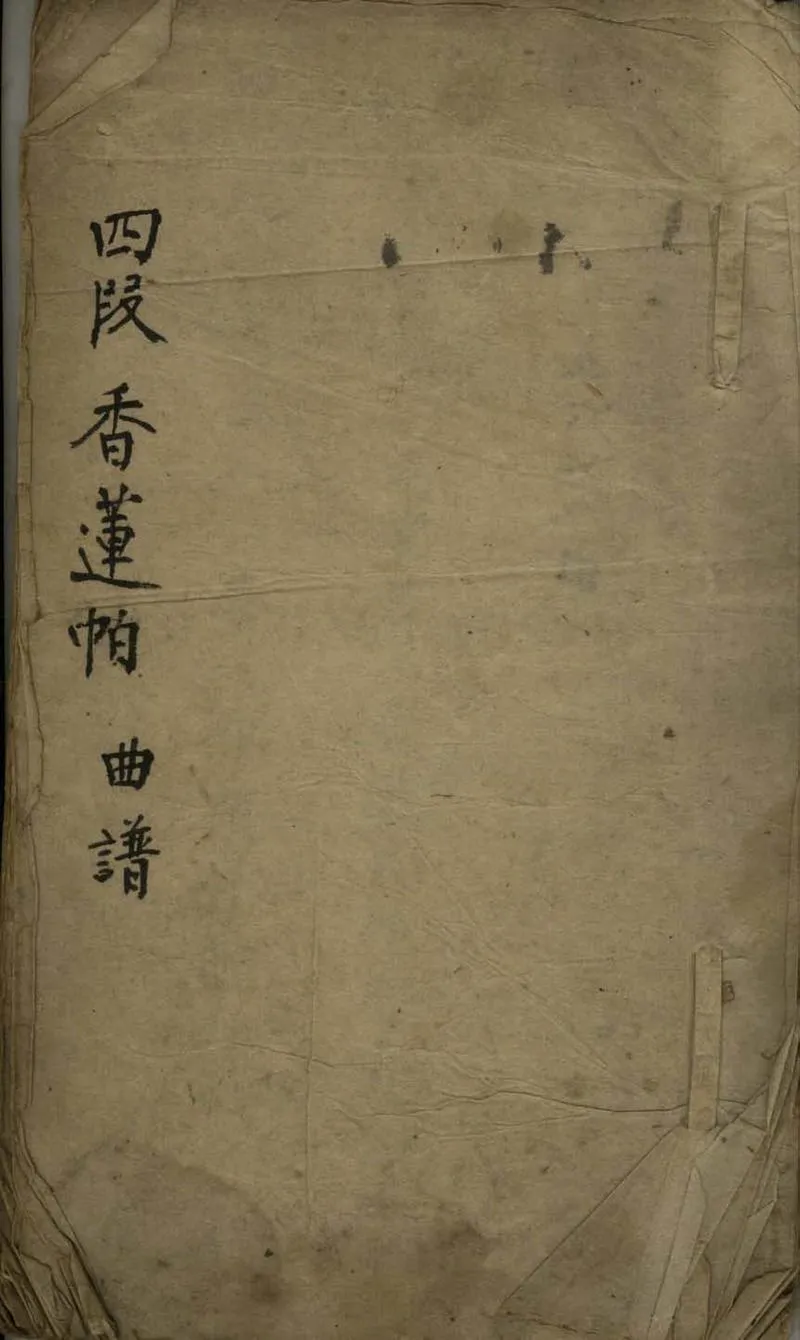 四段 香蓮帕 曲譜